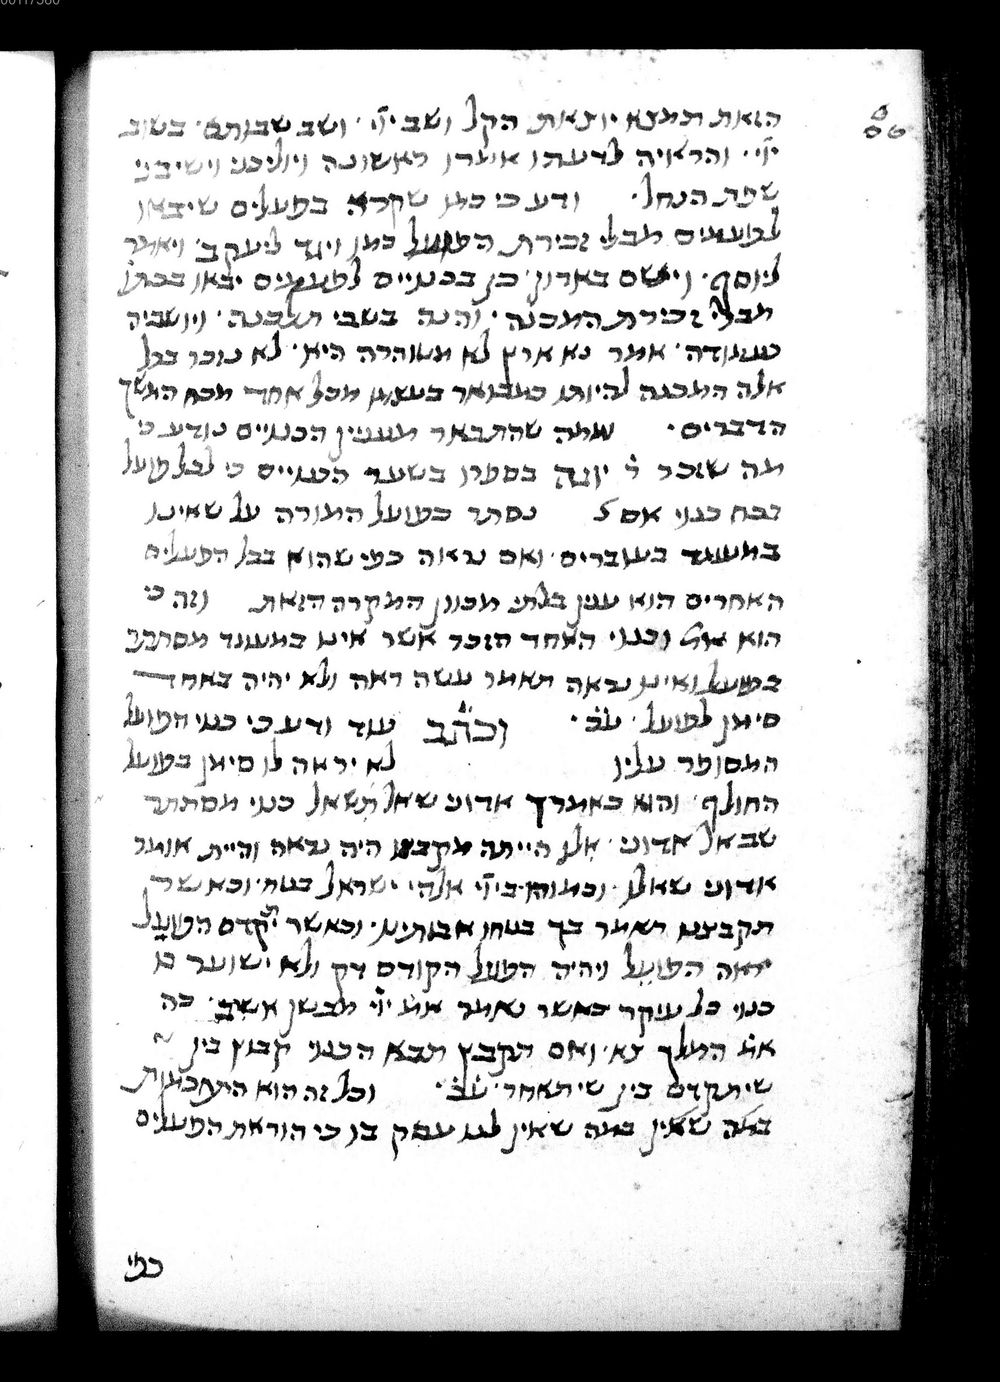 הזאת תמצא יוצאת הקל ושב יי׳ · ושב שבותם · בשוב
יי׳ · והראויה לדעתו אומרו ראשונה ויוליכני וישיבני
שפת הנחל · ודע כי כמו שקרה בפעלים שיבאו
לפועמים מבלי זכירת הפועל כמו ויגד ליעקב · ויאמר
ליוסף · ויישם בארון · כן בכנויים לפעמים יבאו בכתו׳
מבלי זכירת המכנה · והנה בשבי תלבנה · ויושביה
כענודה · אמר נא ארץ לא מטוהרה היא · לא נזכר בכל
אלה המכנה להיותו כמבואר בעצמו מכל אחד מכח המשך
הדברים · ומה שהתבאר מענין הכנויים נודע כי
מה שזכר ר׳ יונה בספרו בשער הכנויים כי לכל פועל
בכח כנוי אם ל נסתר כפועל המורה על שאינו
במעמד בעוברים · ואם נראה כפי שהוא בכל הפעלים
האחרים הוא ענין בלתי מכוון המקרה הזאת וזה כי
הוא אמ׳ וכנוי האחד הזכר אשר אינו במעמד מסתתר
בפועל ואינו נראה תאמר עשה ראה ולא יהיה באחד
סימן לפועל · עכ׳ · וכתב עוד ודע כי כנוי הפועל
המסופר עליו לא יראה לו סימן בפועל
החולף · והוא כאמרך אדוני שאל תשאל כנוי מסתתר
שבאל אדוני · אלו הייתה מקבצו היה נראה והיית אומר
אדוני שאלו · וכמוהו בי׳י׳ אלהי ישראל בטח · וכאשר
תקבצנו תאמר בך בטחו אבותינו · וכאשר יקדם הפועל
יראה הפועל ויהיה הפועל הקודם רק ולא ישוער בו
כנוי כל עיקר כאשר נאמר אמ׳ יי׳ מבשן אשיב · כה
אמ׳ המלך צא · ואם תקבץ תבא הכנוי קבוץ בין
שיתקדם בין שיתאחר · עכ׳ · וכל זה הוא התחכמות
במה שאין במה שאין לנו עסק בו כי הוראת הפעלים
כפי